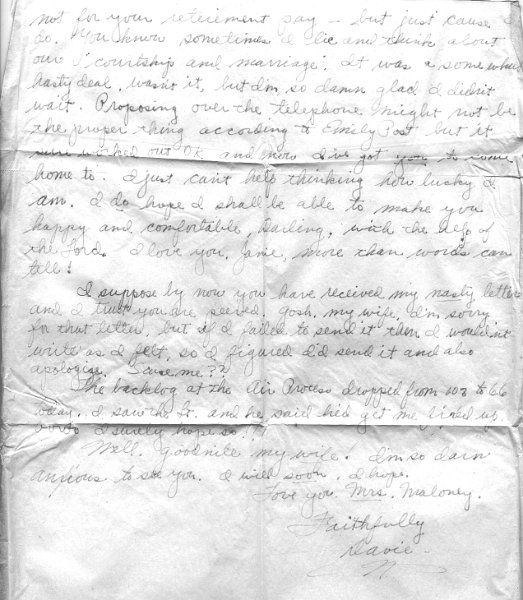 not for your retirement pay - but just cause I
do. You know sometimes I lie and think about
our "courtship and marriage". It was a somewhat
hasty deal, wasn't it, but I'm so damn glad I didn't
wait. Proposing over the telephone might not be
the proper thing according to Emily Post but it
sure worked out OK and now I've got you to come
home to. I just can't help thinking how lucky I
am. I do hope I shall be able to make you
happy and comfortable, Darling, with the help of
the Lord. I love you, Jane, more than words can
tell!
I suppose by now you have received my nasty letter
and I trust you are seered. Gosh, my wife, I'm sorry
for that letter, but if I failed to send it then I wouldn't
write as I felt, so I figured I'd send it and also
apologise. 'Scuse me??
The backlog at the Air Process dropped from 108 to 66
today. I saw the Lt. and he said he'd get me fixed up
I surely hope so!!
Well. Goodnite my wife. I'm so darn
anxious to see you. I will soon, I hope.
Love you Mrs. Maloney.
Faithfully
Davie